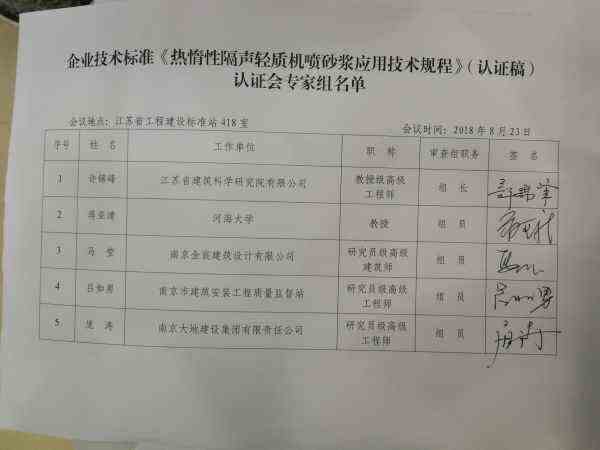 企业技术标准《热惰性隔声轻质机喷砂浆应用技术规程》（认证稿）
认证会专家组名单
会议地点：江苏省工程建设标准站 418 室
会议时间：2018 年 8 月 23 日
序号 姓 名 工作单位 职 称 审查组职务 签 名
1 许锦峰 江苏省建筑科学研究院有限公司 教授级高级工程师 组 长
2 蒋亚清 河海大学 教授 组 员
3 马 莹 南京金宸建筑设计有限公司 研究员级高级建筑师 组 员
4 吕如勇 南京市建筑安装工程质量监督站 研究员级高级工程师 组 员
5 庞 涛 南京大地建设集团有限责任公司 研究员级高级工程师 组 员